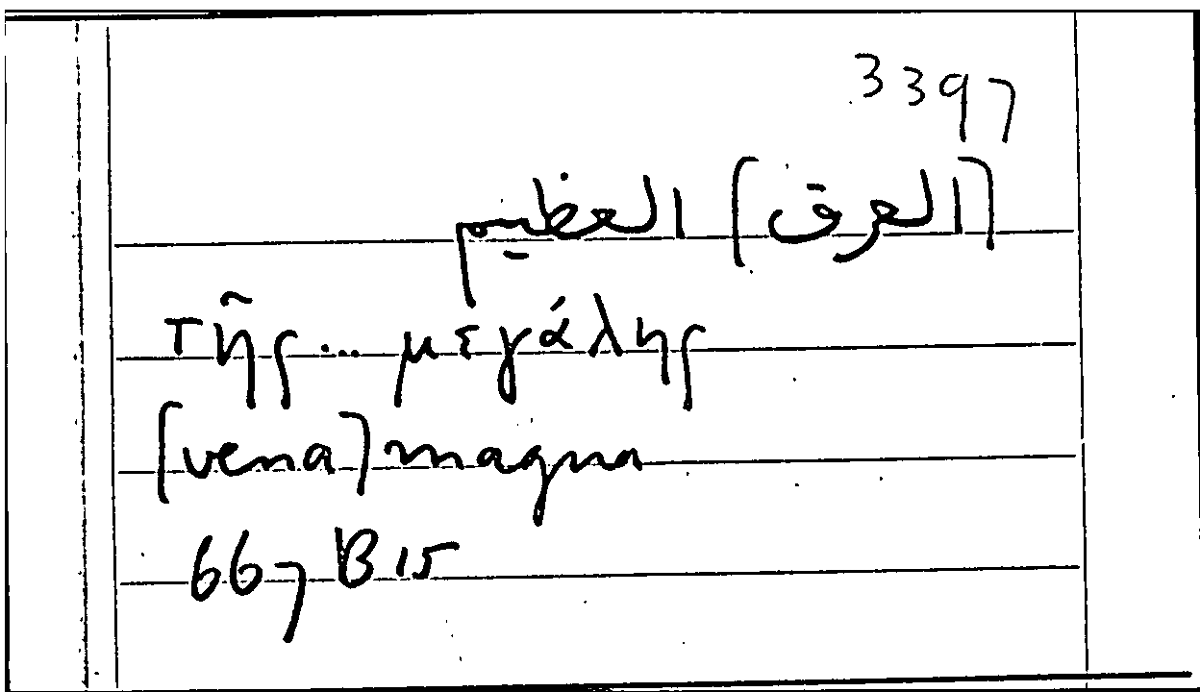 3397
[العرق] العظيم
τῆς... μεγάλης
[vena] magna
667 B 15